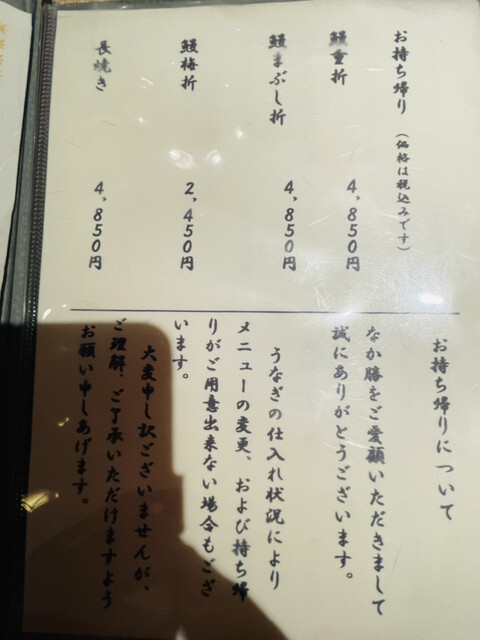 お持ち帰り（価格は税込みです）
鰻重折 4,850円
鰻まぶし折 4,850円
鰻梅折 2,450円
長焼き 4,850円
お持ち帰りについて
なか勝をご愛顧いただきまして
誠にありがとうございます。
うなぎの仕入れ状況により
メニューの変更、および持ち帰
りがご用意出来ない場合もござ
います。
大変申し訳ございませんが、
ご理解・ご了承いただけますよう
お願い申しあげます。